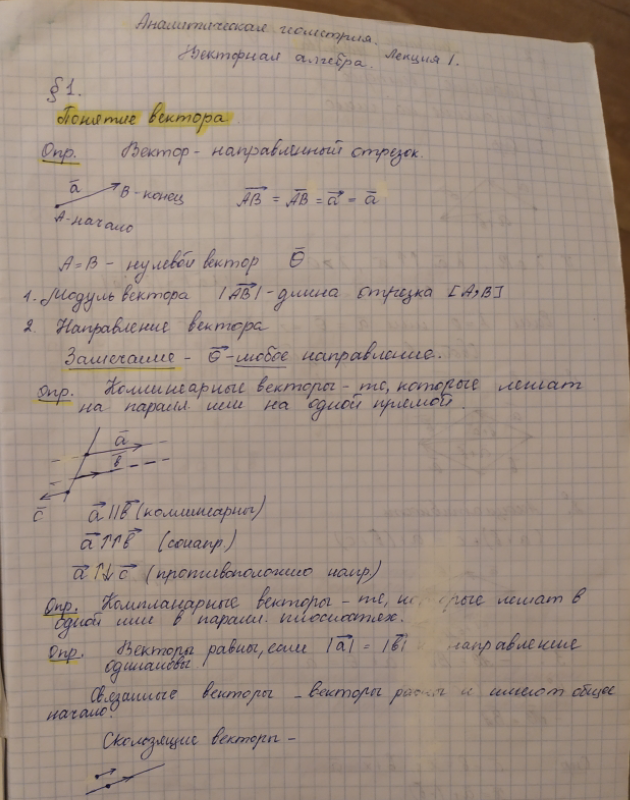 Аналитическая геометрия.
Векторная алгебра. Лекция 1.
§1.
Понятие вектора
Опр. Вектор - направленный отрезок.
a̅ B - конец A͞B⃗ = A͞B = a⃗ = a̅
A - начало
A = B - нулевой вектор 0̅
1. Модуль вектора |AB⃗| - длина отрезка [A,B]
2. Направление вектора
Замечание - 0⃗ - любое направление.
Опр. Коллинеарные векторы - те, которые лежат
на паралл. или на одной прямой.
a⃗
b⃗
c̅ a⃗ || b⃗ (коллинеарны)
a⃗ ↑↑ b⃗ (сонапр.)
a⃗ ↑↓ c⃗ (противоположно напр)
Опр. Компланарные векторы - те, которые лежат в
одной или в паралл. плоскостях.
Опр. Векторы равны, если |a⃗| = |b⃗| направление
одинаковы
Связанные векторы - векторы равны и имеют общее
начало.
Скользящие векторы -